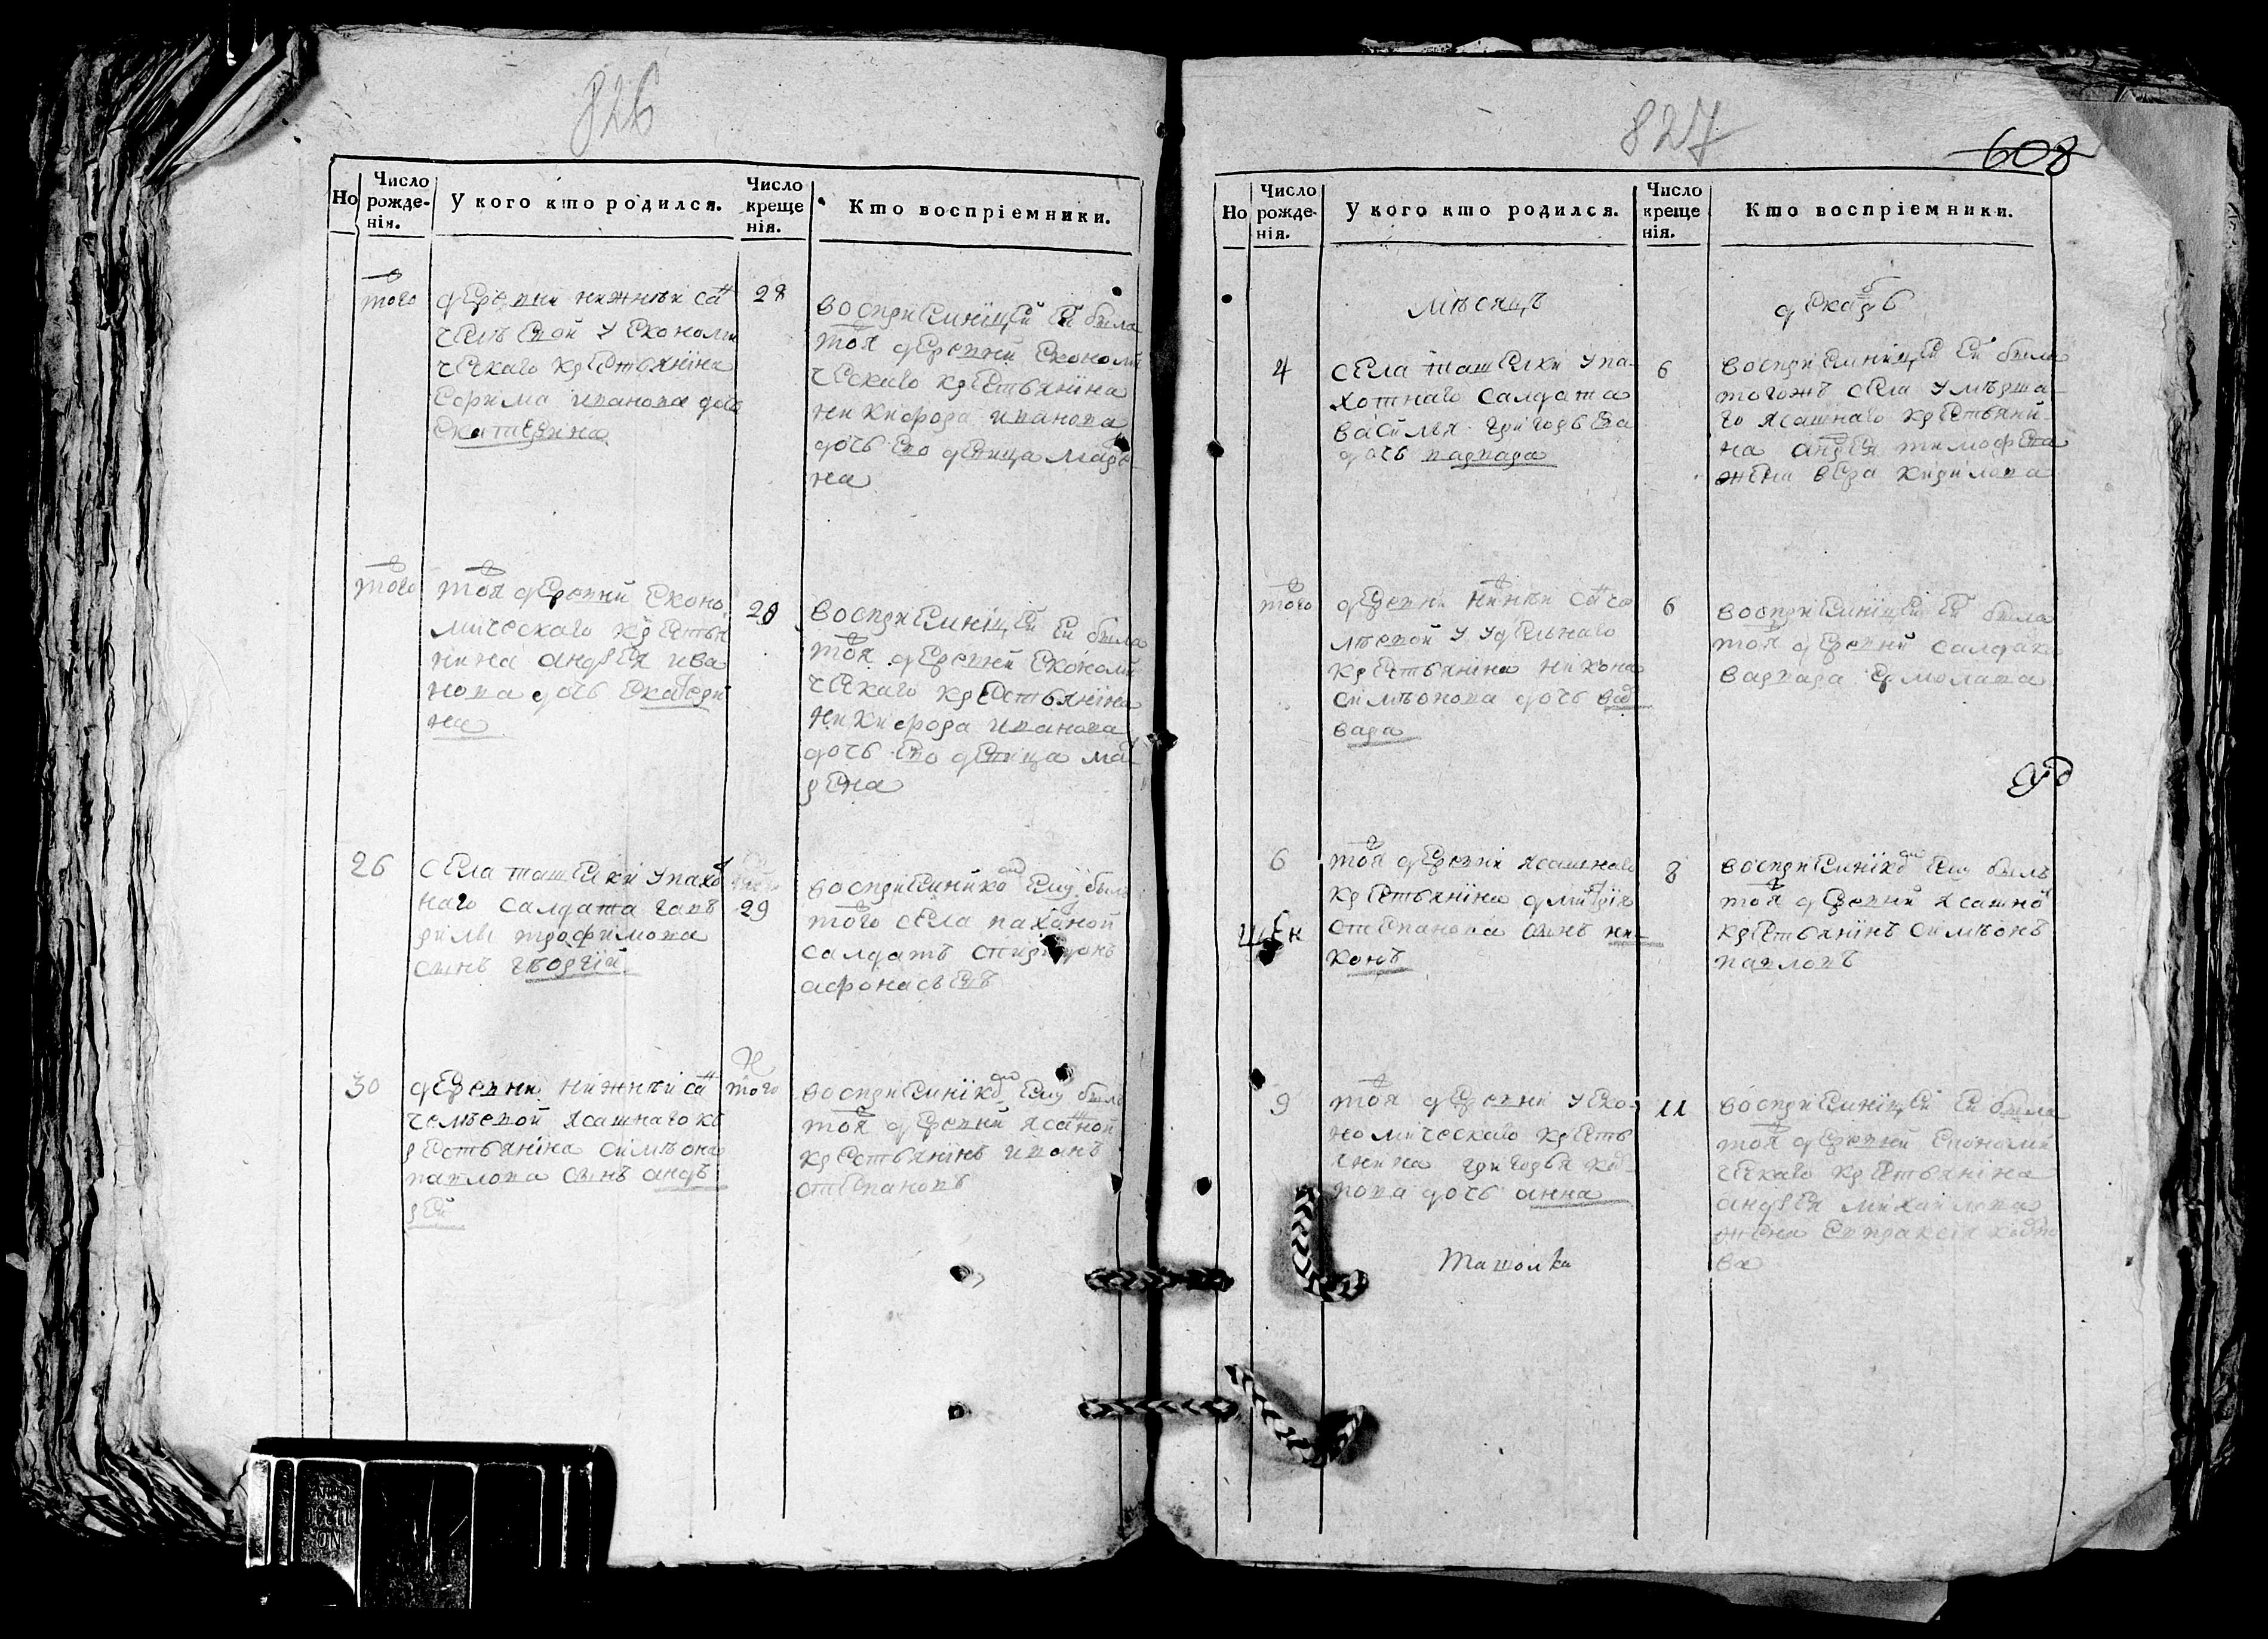 826
Но
Число рожденія.
У кого кто родился.
Число крещенія.
Кто воспріемники.
того
деревни нижнѣй са
челѣевой у економи
ческаго крестьянина
ефима иванова дочь
екатерина
28
восприемницей ей была
тоя деревни економи
ческаго крестьянина
никифора иванова
дочь ево девица марь
на
того
тоя деревни еконо
мическаго крестья
нина андрея ива
нова дочь екатери
на
28
восприемницей ей была
тоя деревни економи
ческаго крестьянина
никифора иванова
дочь ево девица ма
рена
26
села ташелки у пахо
наго салдата гав
рилы трофимова
сынъ гѣоргій
29
восприемнико ему былъ
того села паханой
салдатъ спиридонъ
афонасьевъ
30
деревни нижнѣй са
челѣевой ясашнаго кь
рестьянина симѣона
павлова сынъ андь
рей
того
восприемнико ему былъ
тоя деревни ясаной
крестьянинъ иванъ
степановъ
827
608
Но
Число рожденія.
У кого кто родился.
Число крещенія.
Кто воспріемники.
мѣсяцъ
декабрь
4
села ташелки у па
хотнаго салдата
василья григорьева
дочь варвара
6
восприемницей ей была
тогожъ села умѣрша
го ясашнаго крестьяни
на андрея тимофева
жена вера кирилова
того
деревни нинѣи сача
лѣевой у удельнаго
крестьянина никона
симѣонова дочь ва
вара
6
восприемницей ей была
тоя деревни салдака
варвара ермолава
6
тоя деревни ясашнаго
крестьянина дмитрія
степанова сынъ ни
конъ
8
восприемнико ему былъ
тоя деревни ясашно
крестьянинъ симѣонъ
павловъ
9
тоя деревни у еко
номическаго кресть
янина григорья ка
пова дочь анна
11
восприемницей ей была
тоя деревни економи
ческаго крестьянина
андрея михайлова
жена евпраксія
ва
Ташолка